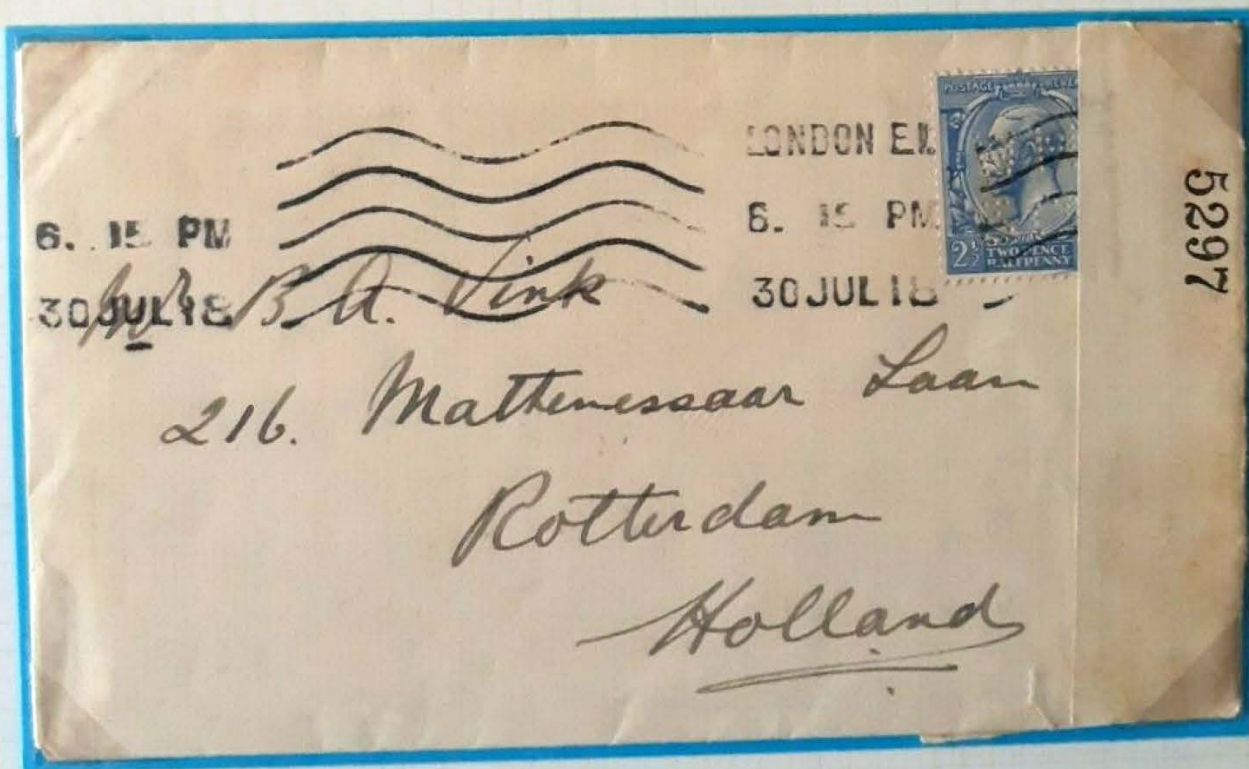 LONDON E.1.
6. 15 PM
30 JUL 18
6. 15 PM
30 JUL 18
POSTAGE REVENUE
2½ TWO PENCE
HALFPENNY
5297
Mr B. A. Vink
216. Mathenessaar Laan
Rotterdam
Holland